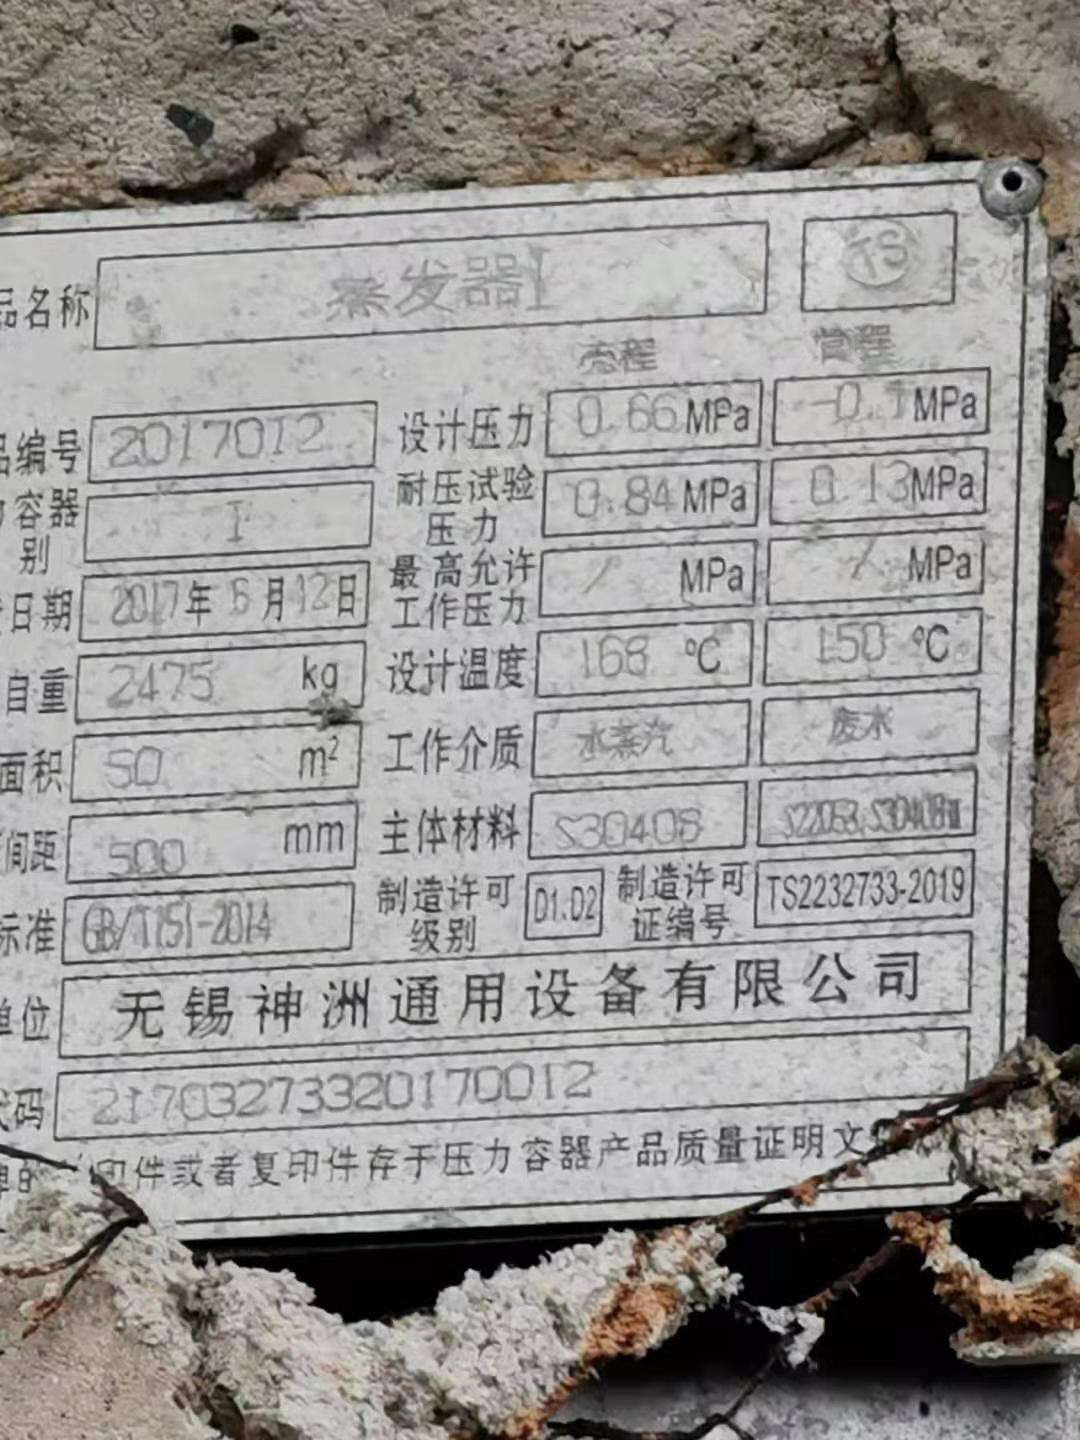 品名称 蒸发器I TS
壳程 管程
品编号 2017012 设计压力 0.66MPa -0.1MPa
力容器别 I 耐压试验压力 0.84MPa 0.13MPa
最高允许工作压力 / MPa / MPa
日期 2017年6月12日
自重 2475 kg 设计温度 168 ℃ 150 ℃
面积 50 m² 工作介质 水蒸汽 废水
间距 500 mm 主体材料 S30408
标准 GB/T151-2014 制造许可级别 D1.D2 制造许可证编号 TS2232733-2019
单位 无锡神洲通用设备有限公司
代码 21703273320170012
牌的 印件或者复印件存于压力容器产品质量证明文